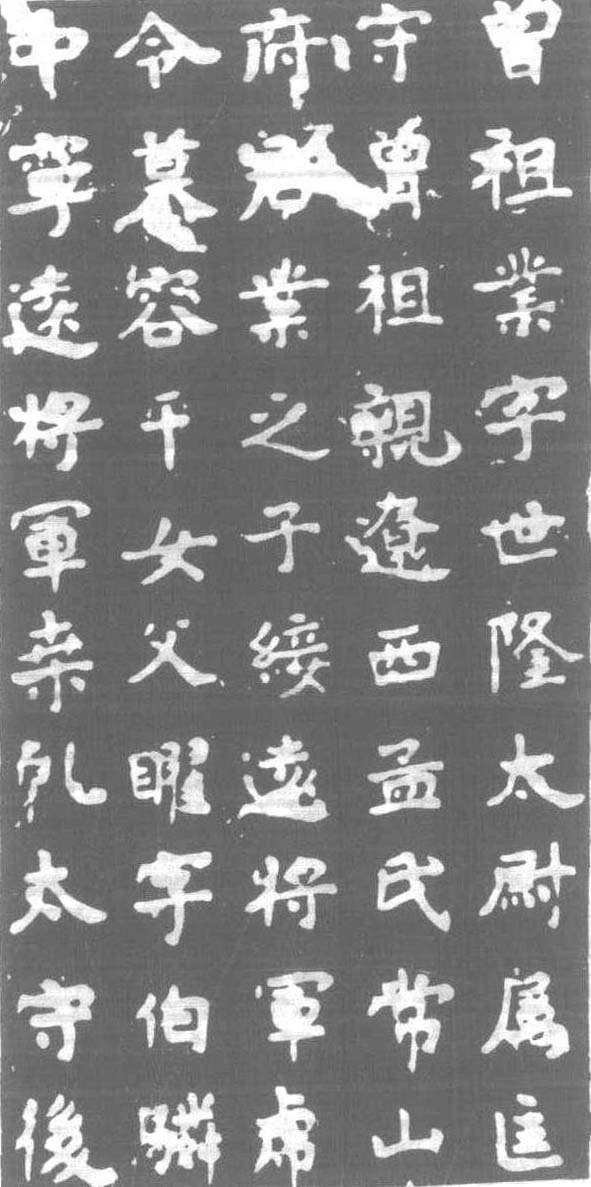 曾祖業字世隆太尉属匡
守曾祖親遼西孟氏常山
府君業之子綏遠將軍虎
令慕容干女父曜字伯驎
中寧遠將軍桒乹太守後